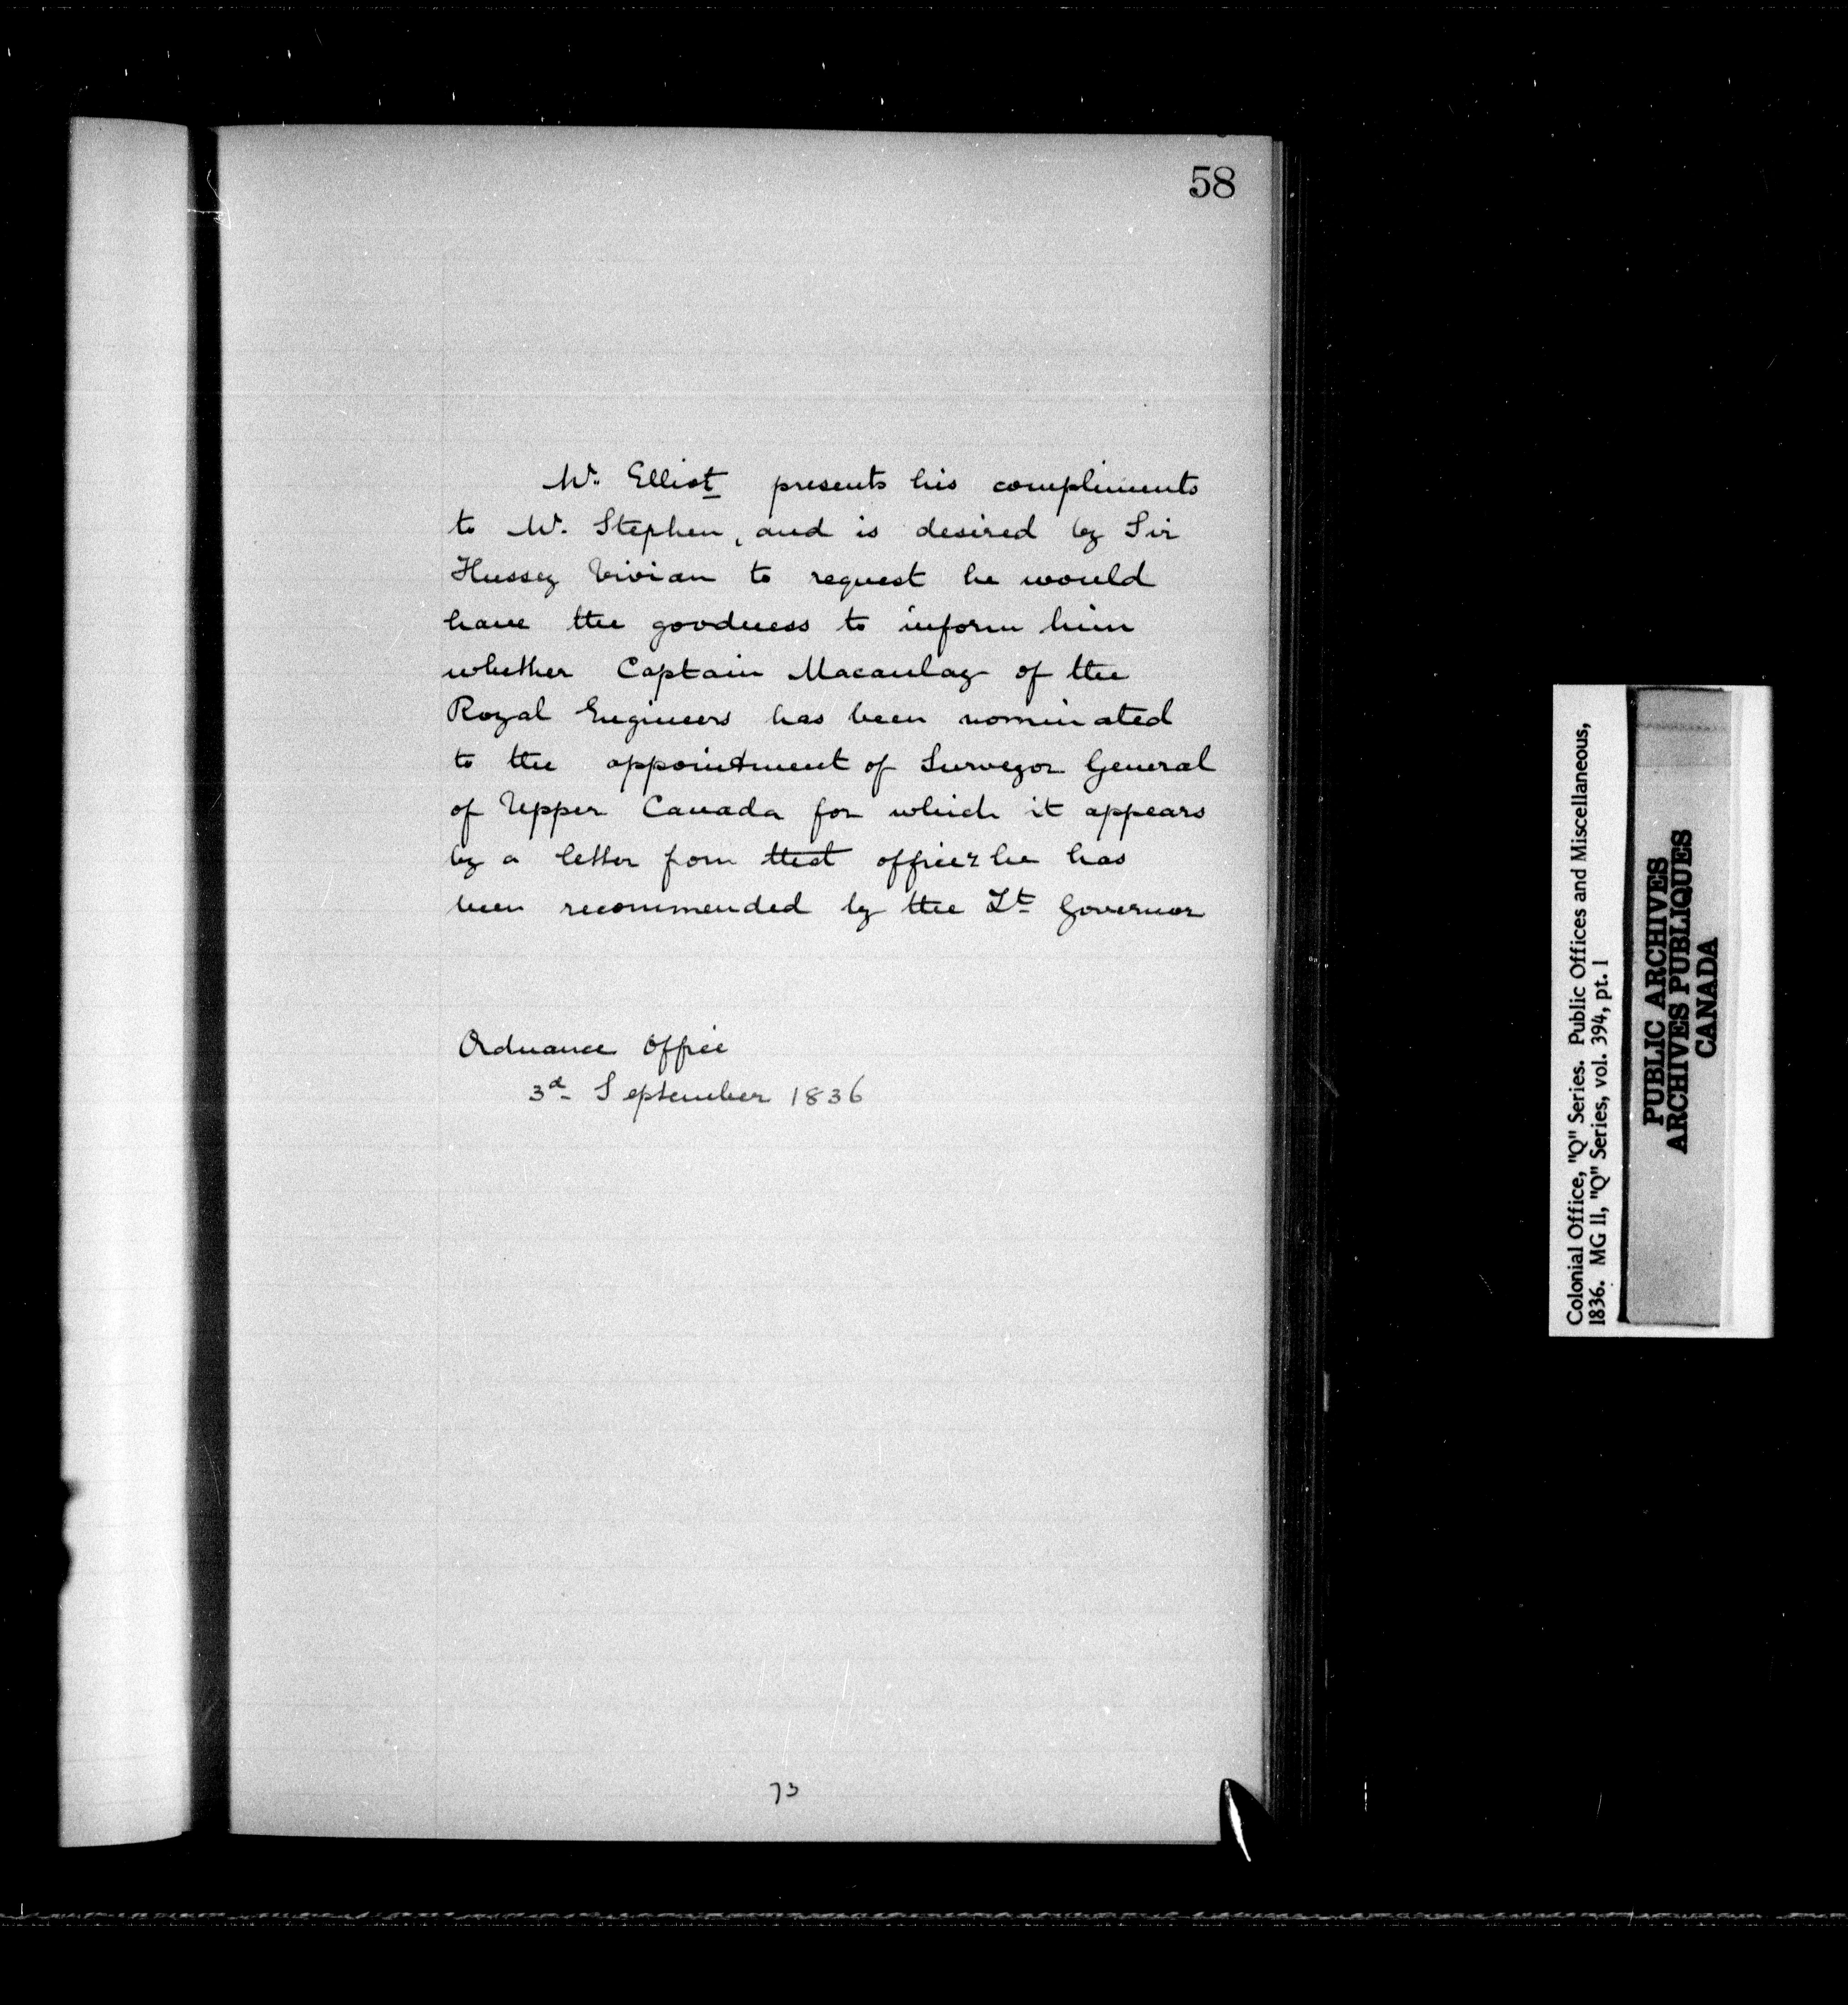 58
Mr. Elliot presents his compliments
to Mr. Stephen, and is desired by Sir
Hussey Vivian to request he would
have the goodness to inform him
whether Captain Macaulay of the
Royal Engineers has been nominated
to the appointment of Surveyor General
of Upper Canada for which it appears
by a letter from that officer he has
been recommended by the Lt Governor
Ordnance Office
3d September 1836
73
Colonial Office, "Q" Series. Public Offices and Miscellaneous,
1836. MG 11, "Q" Series, vol. 394, pt. 1
PUBLIC ARCHIVES
ARCHIVES PUBLIQUES
CANADA